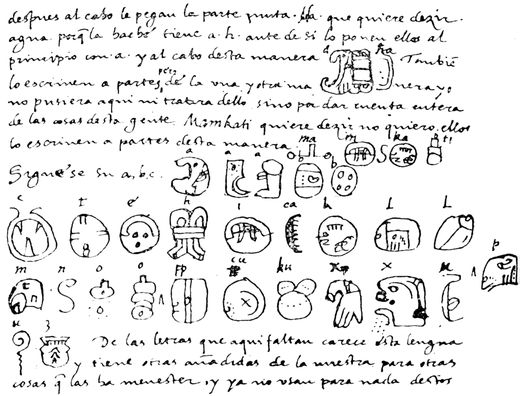 despues al cabo le pegan la parte junta. ha. que quiere dezir
agua porq̃ la haché tiene a. h. ante de si lo ponen ellos al
principio con a. y al cabo desta manera a ha Tambiẽ
lo escriuen a partes, pero de la una y otra ma nera yo
no pusiera aqui ni tratara dello sino por dar cuenta entera
de las cosas desta gente. Mainkati quiere dezir no quiero, ellos
lo escriuen a partes desta manera ma i n ka ti
Siguese su a, b, c. a a a b b
c t e h i ca k l l
m n o o pp cu ku x x u p
u z De las letras que aqui faltan carece esta lengua
y tiene otras añadidas de la nuestra para otras
cosas q̃ las ha menester, y ya no usan para nada destos